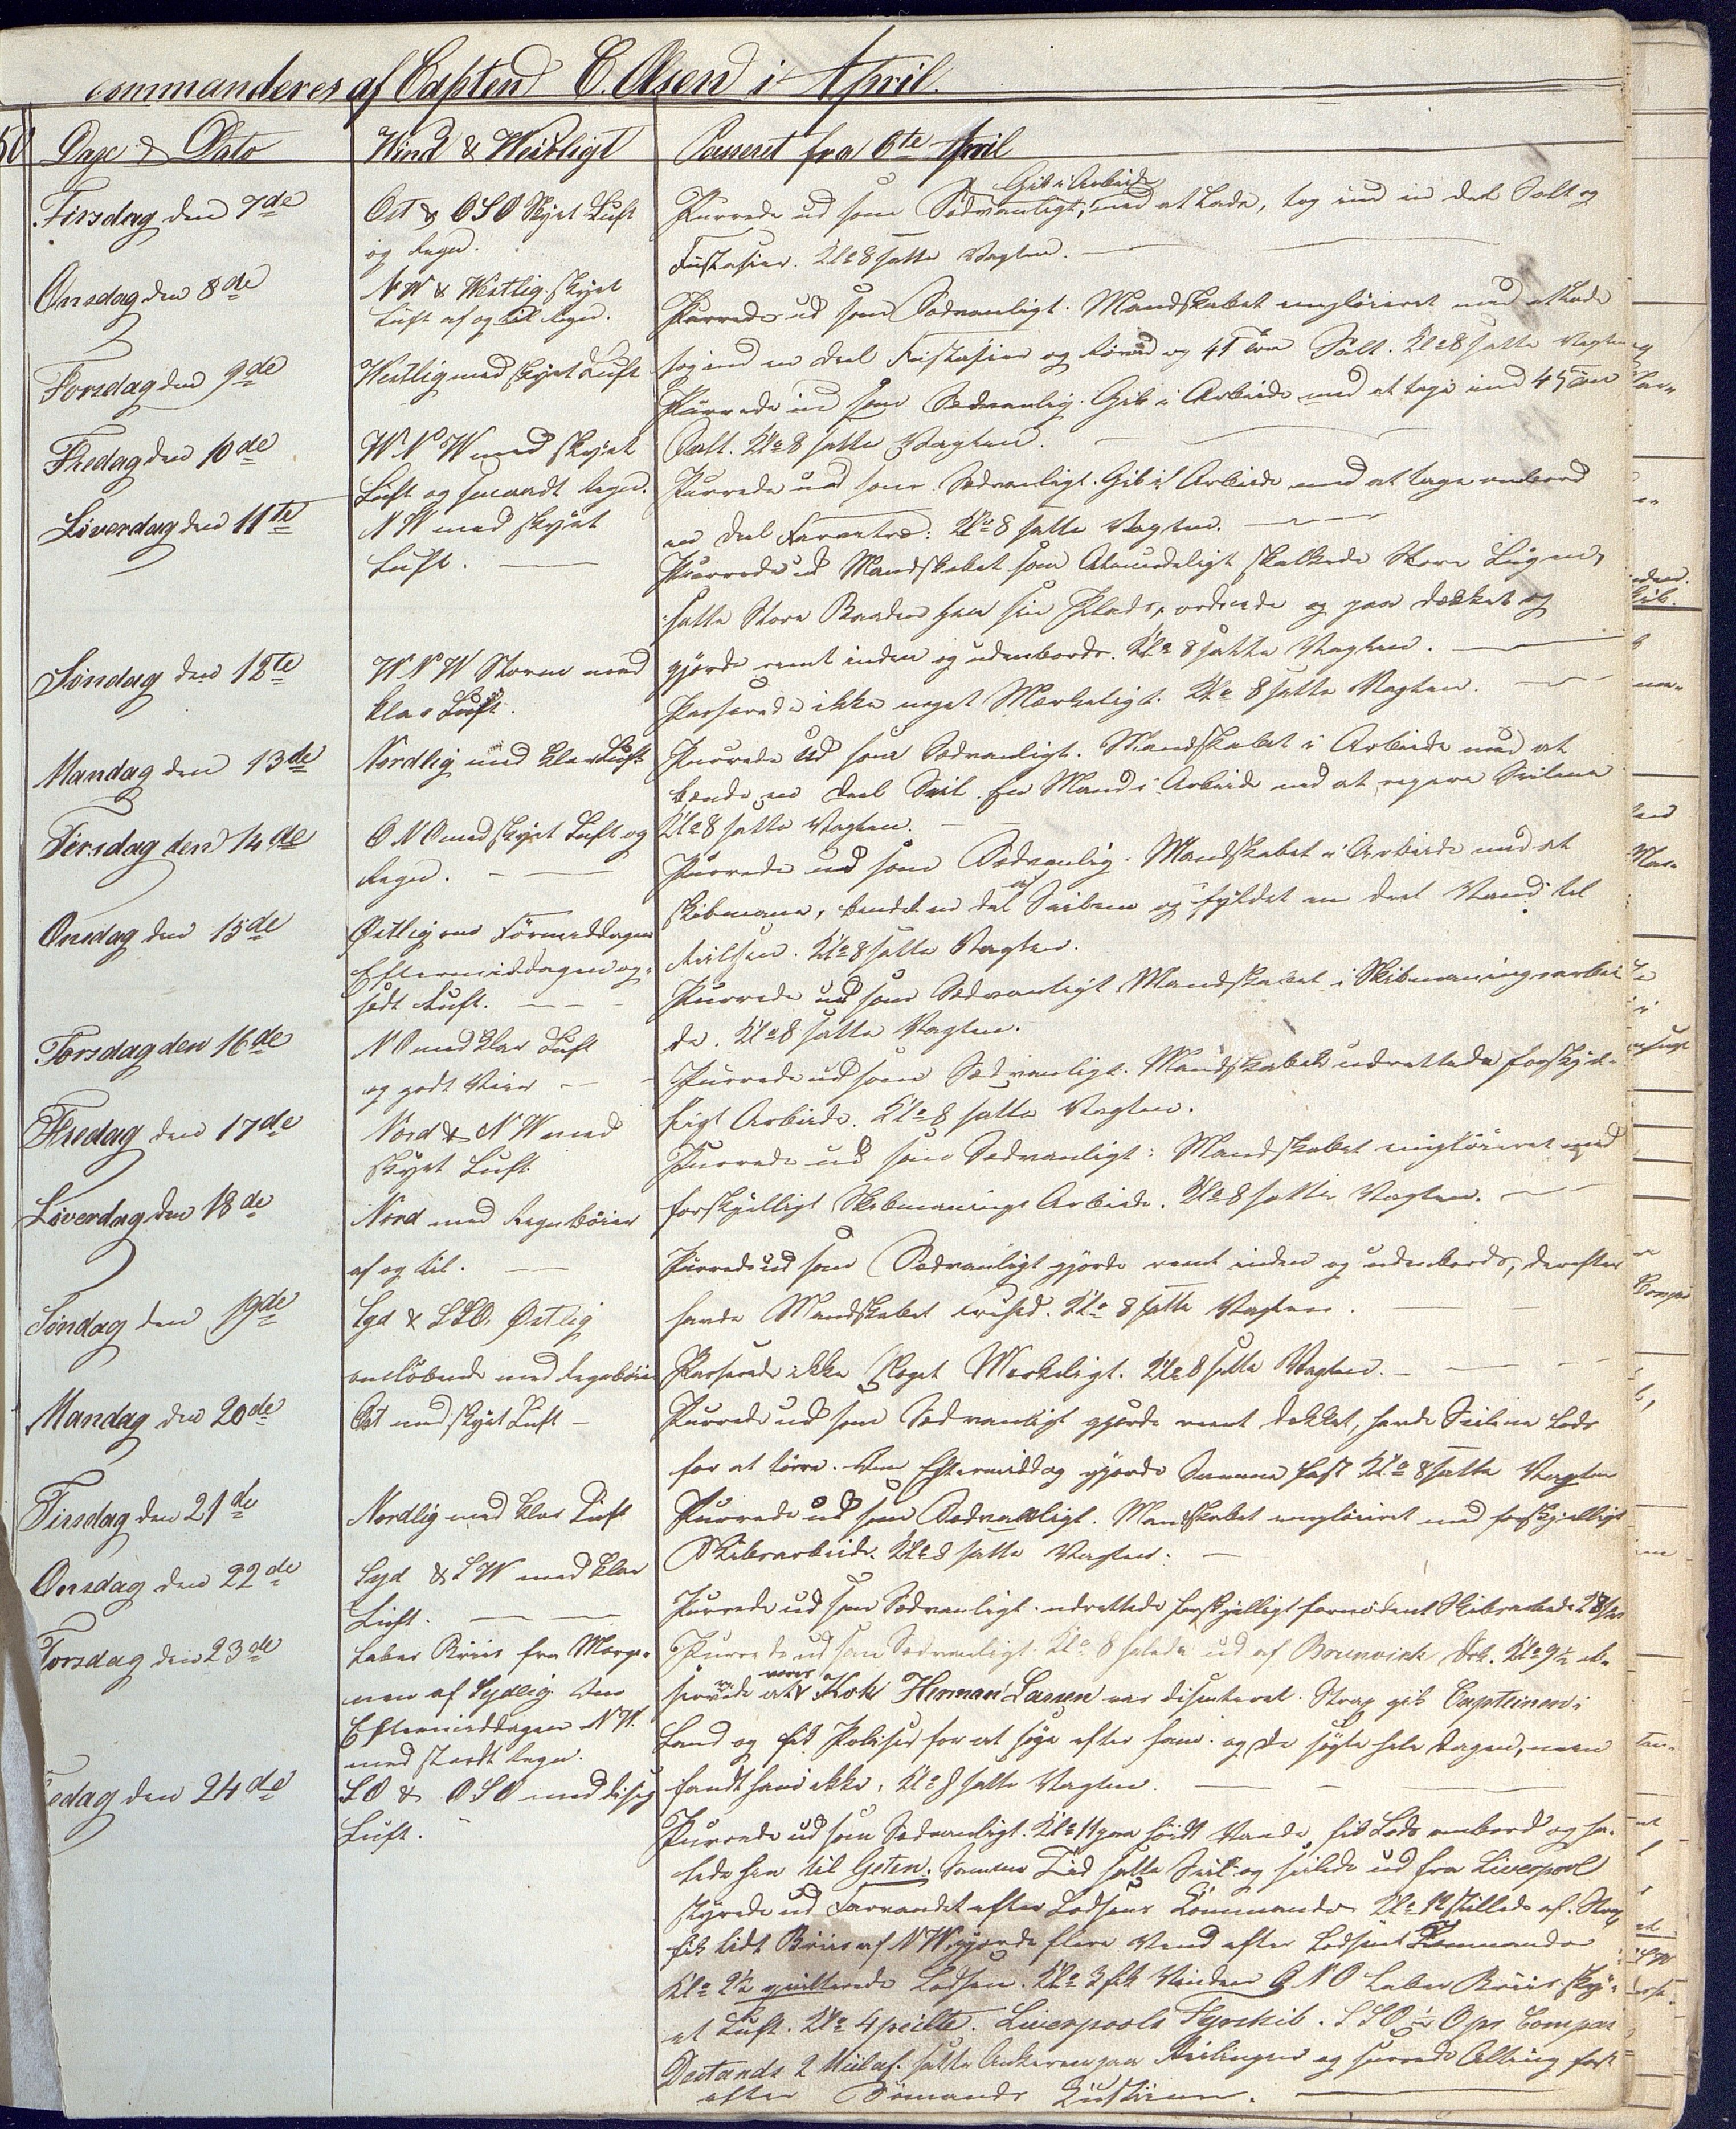 commanderes af Capten C. Olsen i April.
Dage & Dato
Wind & Weirligt
Passeret fra 6te April
Tirsdag den 7de
Ost & OSO Skyet Luft
og Regn.
Gik i Arbeide
Purrede ud som Sædvanligt, med at Lade, tog ind en del Salt og
Fustasier. Kl. 8 satte Vagten.
Onsdag den 8de
NW & Westlig skyet
Luft af og til Regn.
Purrede ud som Sædvanligt. Mandskabet
med at Lade
tog ind en deel Fustasier og 45 Tons Salt. Kl. 8 satte Vagten
Torsdag den 9de
Westlig med skyet Luft
Purrede ud som Sædvanlig. Gik i Arbeide med at tage ind 45 Tons
Salt. Kl. 8 satte Vagten.
Fredag den 10de
WNW med skyet
Luft og smaat Regn.
Purrede ud som Sædvanligt. Gik i Arbeide med at tage ombord
en deel. Kl. 8 satte Vagten.
Löverdag den 11te
NW med skyet
Luft.
Purrede ud Mandskabet som Almindeligt skalkede Store Lugen,
satte Store Baaden paa sin Plads, ordnede og paa dækket og
gjorde reent inden og udenbords. Kl. 8 satte Vagten.
Söndag den 12te
WNW Storm med
klar Luft.
Passerede ikke noget Mærkeligt. Kl. 8 satte Vagten.
Mandag den 13de
Nordlig med klar Luft
Purrede ud som Sædvanligt. Mandskabet i Arbeide med at
bænde en deel Seil. En Mand i Arbeide med at repare Seilene
Kl. 8 satte Vagten.
Tirsdag den 14de
ONO med skyet Luft og
Regn.
Purrede ud som Sædvanlig. Mandskabet i Arbeide med at
skibmane, bendet en del af Seilene og fyldet en deel Vand til
Reilsen. Kl. 8 satte Vagten.
Onsdag den 15de
Östlig om Formiddagen
Eftermiddagen og
Luft.
Purrede ud som Sædvanligt Mandskabet i Skibmaningsarbei
de. Kl. 8 satte Vagten.
Torsdag den 16de
NO med klar Luft
og godt Veir
Purrede ud som Sædvanligt. Mandskabet udrettede forskjel-
ligt Arbeide. Kl. 8 satte Vagten.
Fredag den 17de
Nord & NW med
skyet Luft
Purrede ud som Sædvanligt: Mandskabet med
forskjelligt Skibmanings Arbeide. Kl. 8 satte Vagten.
Löverdag den 18de
Nord med Regnböier
af og til.
Purrede ud som Sædvanligt gjorde reent inden og udenbords, derefter
havde Mandskabet frihed. Kl. 8 satte Vagten.
Söndag den 19de
Syd & SSO, Östlig
omlöbende med Regnböier
Passerede ikke Noget Merkeligt. Kl. 8 satte Vagten.
Mandag den 20de
Ost med skyet Luft
Purrede ud som Sædvanligt gjorde reent dekket, havde Seilene Löse
for at törre. Om Eftermiddag gjorde Samme fast Kl. 8 satte Vagten
Tirsdag den 21de
Nordlig med klar Luft
Purrede ud som Sædvanligt. Mandskabet med forskjelligt
Skibsarbeide. Kl. 8 satte Vagten.
Onsdag den 22de
Syd & SW med klar
Luft.
Purrede ud som Sædvanligt. udrettede forskjelligt fornödent Skibsarbeide
Torsdag den 23de
Laber Kuling fra Morge-
nen af Sydlig Om
Eftermiddagen NW.
med stærkt Regn.
Purrede ud som Sædvanligt. Kl. 8 halede ud af Brunvick Dok. Kl. 9½ ob-
serverede at vores Kok Herman Larsen var diserteret. Strax gik Capteinen i
Land og fik Politiet for at söge efter ham. og de sögte hele dagen, men
fandt ham ikke. Kl. 8 satte Vagten.
edag den 24de
SO & OSO med disig
Luft.
Purrede ud som Sædvanligt. Kl. 11 paa höit Vande, fik Lods ombord og ha-
lede hen til Geten. Samme Tid satte Seil og seilede ud fra Liverpool
styrede ud Farvandet efter Lodsens Commando Kl. 12 stillede af. Strax
fik lidt Briis af NW. gjorde flere Vend efter Lodsens Commando
Kl. 2½ quitterede Lodsen. Kl. 3 fik Vinden ONO Laber Briis sky-
et Luft. Kl. 4 peilte Liverpools Fyrskib. SSO ½ O pr Compas
Distands 2 Miil af. satte Ankerne paa Reilingen og surrede Alting fast
efter Sömands